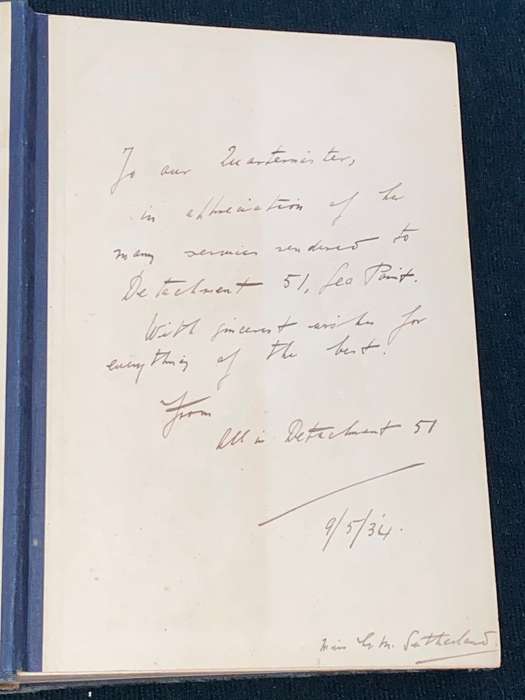 To our Quartermaster,
in appreciation of her
many services rendered to
Detachment 51, Sea Point.
With sincerest wishes for
everything of the best.
From
All in Detachment 51
9/5/34.
Miss M. Sutherland